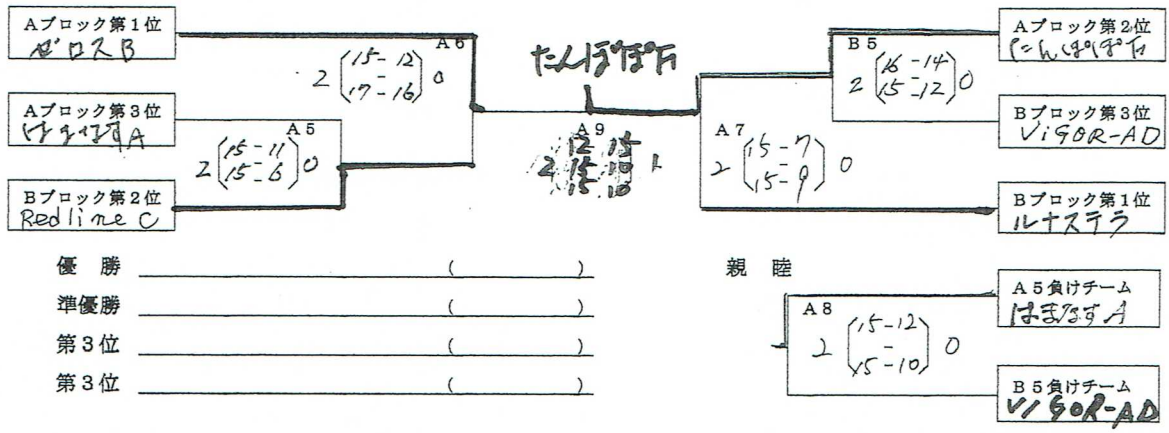 Aブロック第1位
ゼロスB
Aブロック第3位
はまなすA
Bブロック第2位
Redline C
A6
2 (15-12 - 17-16) 0
A5
2 (15-11 15-6) 0
たんぽぽ
A9
2 12 15 15 10 15 10 1
B5
2 (16-14 15-12) 0
A7
2 (15-7 15-9) 0
Aブロック第2位
たんぽぽ
Bブロック第3位
ViGOR-AD
Bブロック第1位
ルナステラ
優 勝 ( )
準優勝 ( )
第3位 ( )
第3位 ( )
親 睦
A8
2 (15-12 - 15-10) 0
A5負けチーム
はまなすA
B5負けチーム
ViGOR-AD